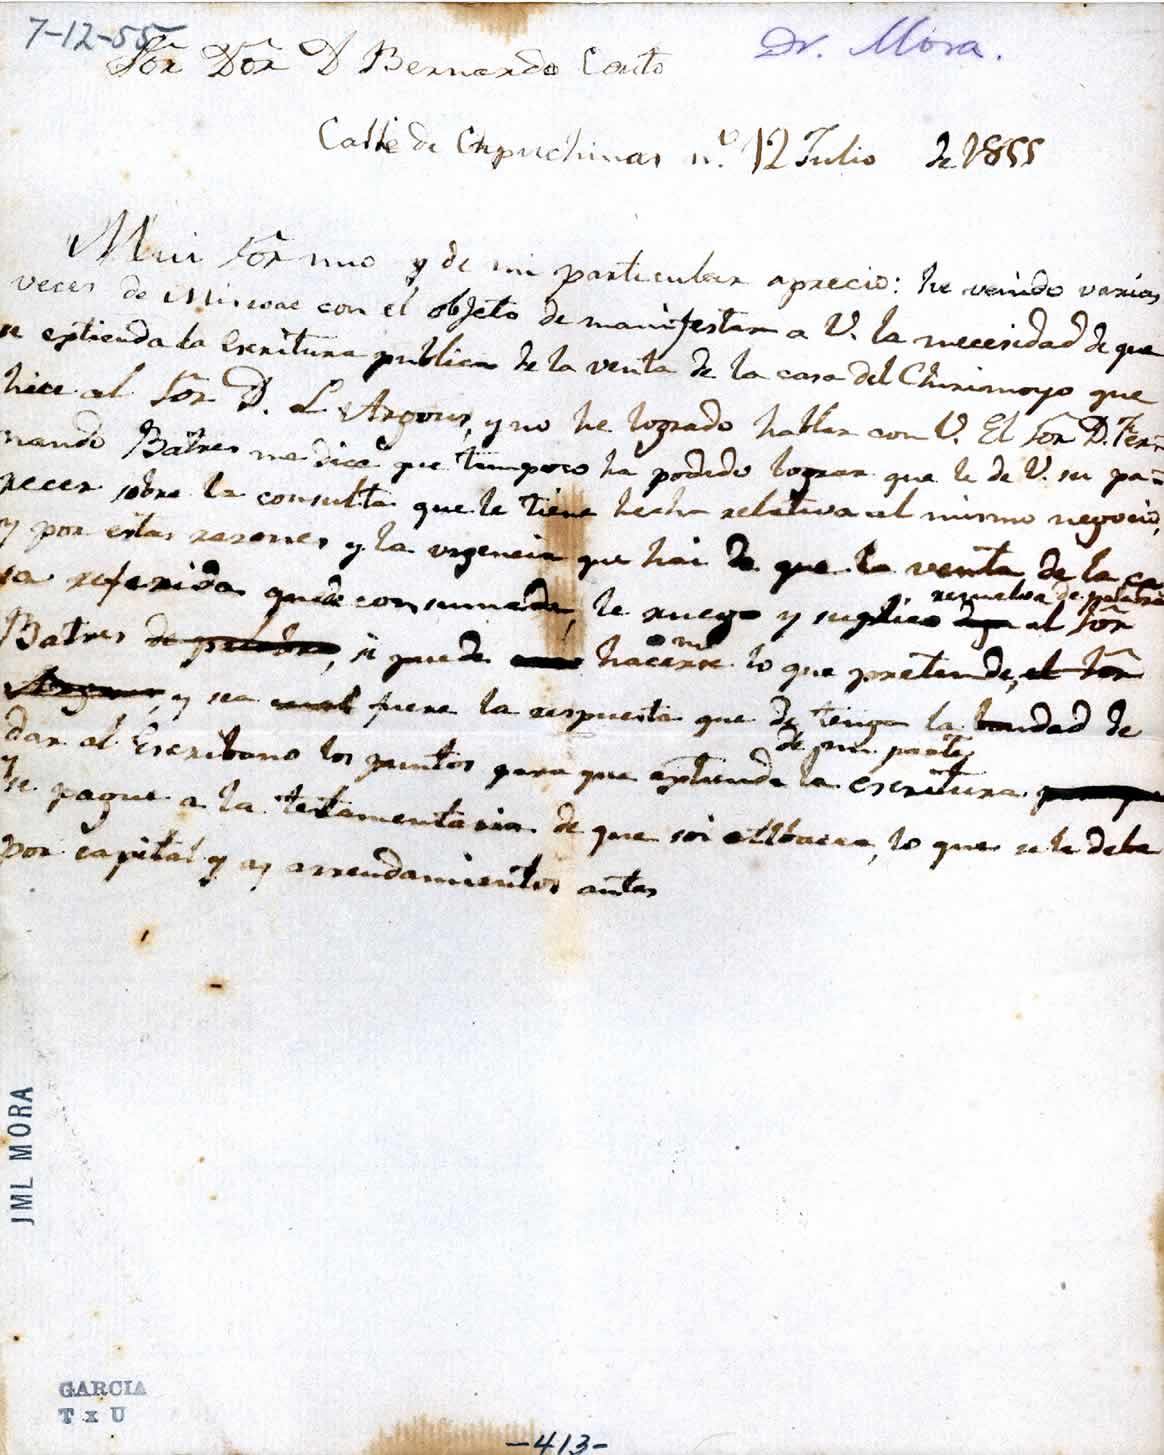 7-12-55
Dr. Mora.
Sõr Dõr D Bernardo Couto
Calle de Capuchinas n.º 12 Julio de 1855
Mui Sõr mio y de mi particular aprecio: he venido varias
veces de Mixcoac con el objeto de manifestar a V. la necesidad de que
se estienda la Escritura publica de la venta de la casa del Chirimoyo que
hice al Sõr D. L Argous, y no he logrado hablar con V. El Sõr D. Fer-
nando Batres me dice que tampoco ha podido lograr que le de V. su pa=
recer sobre la consulta que le tiene hecha relativa al mismo negocio,
y por estas razones y la urgencia que hai de que la venta de la ca
sa referida quede consumada, le ruego y suplico
resuelva de palabra
al Sõr
Batres de palabra, si puede hacerse lo que pretende, el Sõr
Argous, y sea cual fuere la respuesta que de tenga la bondad de
dar al Escribano los puntos para que estienda
de mi parte
la escritura
y se pague a la testamentaria de que soi albacea, lo que se le debe
por capital y arrendamientos antes
JML MORA
GARCIA
T x U
-413-